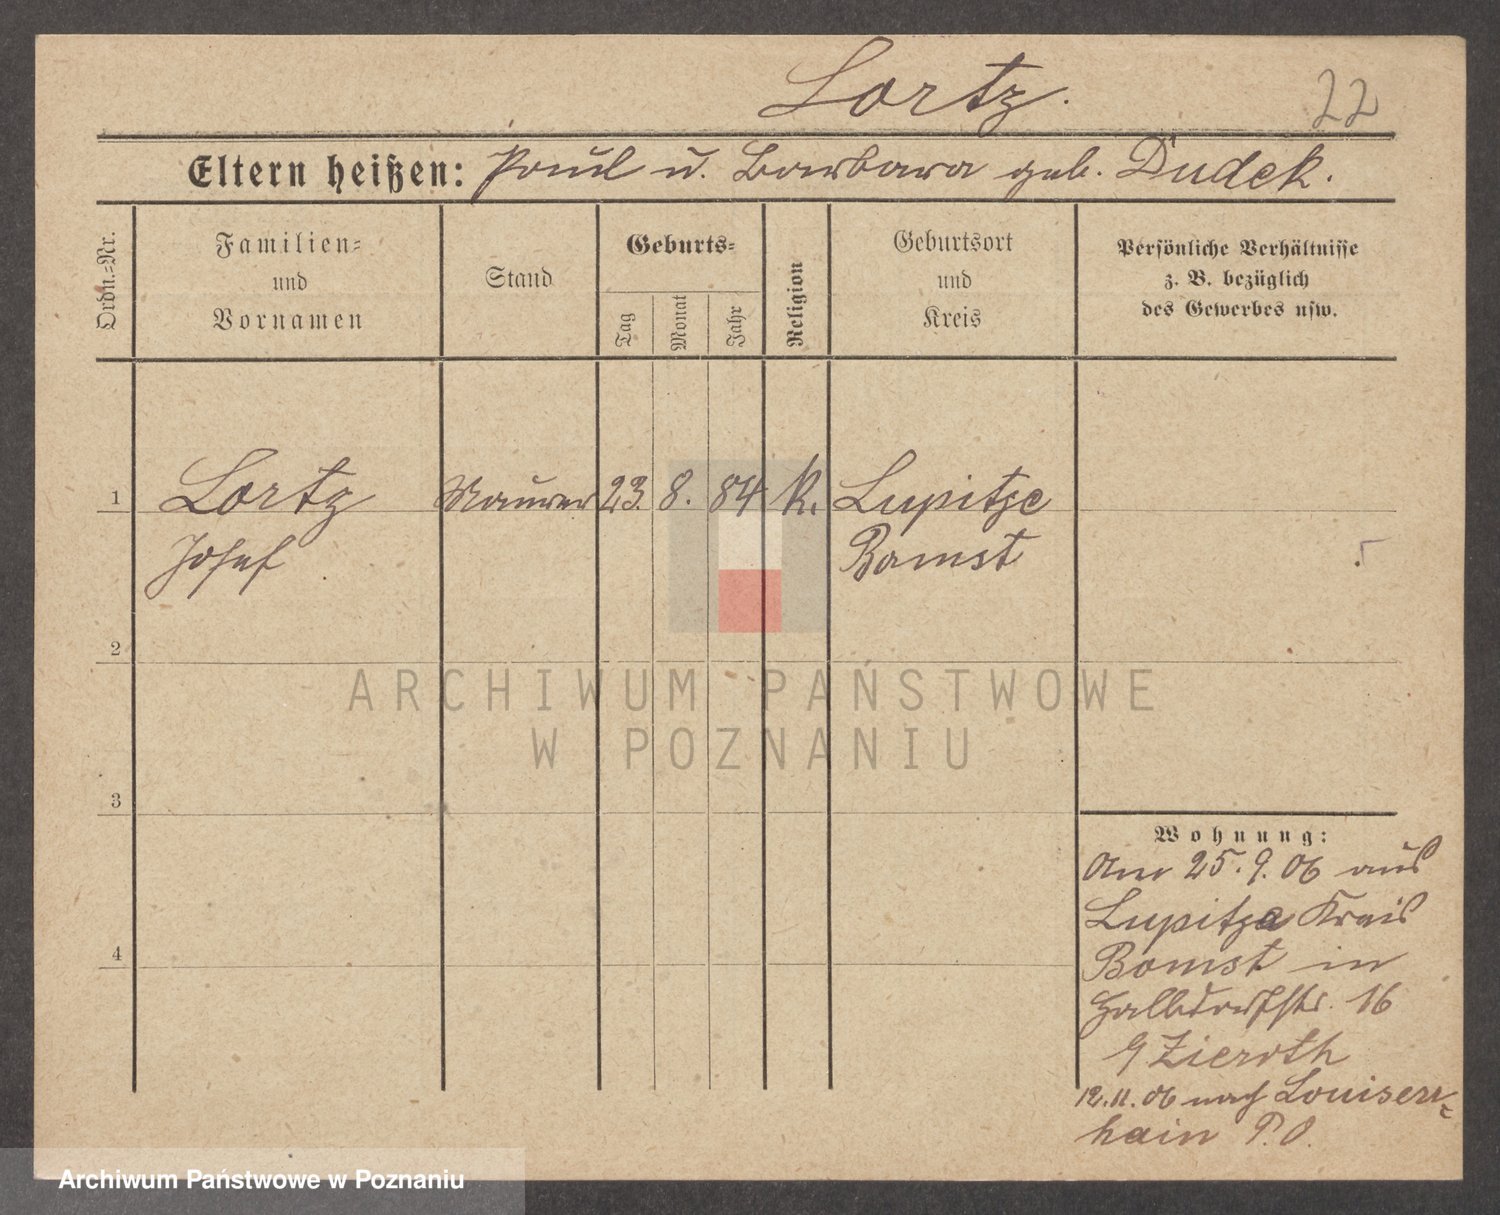 Lortz. 22
Eltern heißen: Paul u. Barbara geb. Dudek.
Ordn.=Nr.
Familien=
und
Vornamen
Stand
Geburts=
Tag
Monat
Jahr
Religion
Geburtsort
und
Kreis
Persönliche Verhältnisse
z. B. bezüglich
des Gewerbes usw.
1 Lortz Maurer 23. 8. 84 k. Lupitze
Josef Bomst
2
3
4
Wohnung:
Am 25.9.06 aus
Lupitze Kreis
Bomst in
Halbdorfstr. 16
Zieroth
12.11.06 nach Louisen=
hain P.O.
ARCHIWUM PAŃSTWOWE
W POZNANIU
Archiwum Państwowe w Poznaniu